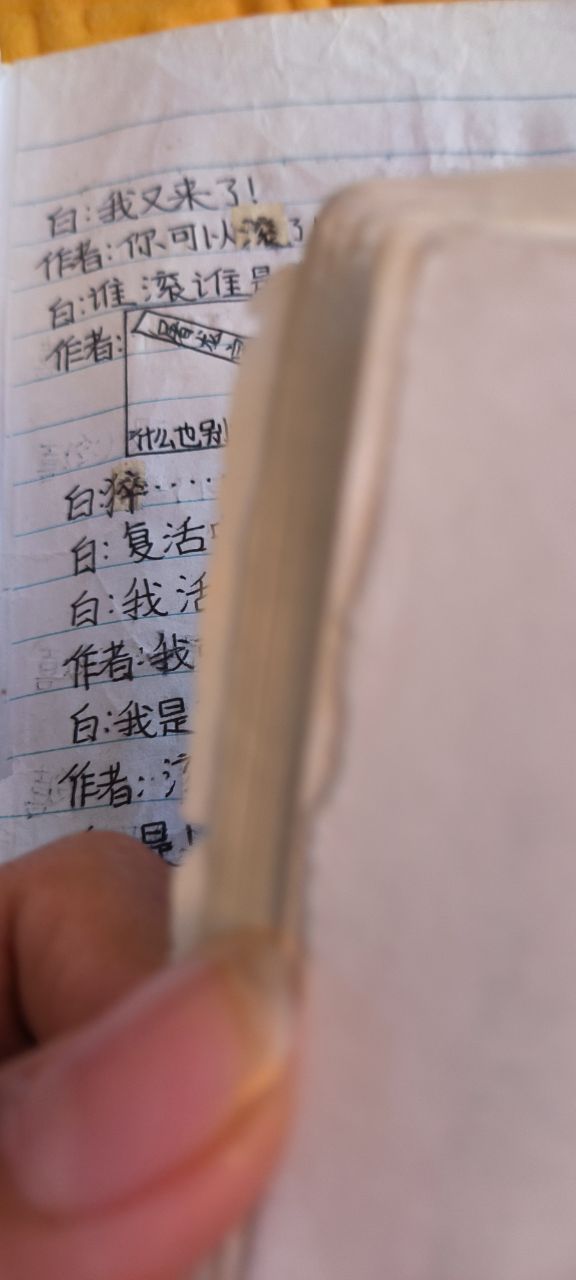 白:我又来了!
作者:你可以滚了!
白:谁滚谁是
作者:
什么也别
白:猝……
白:复活
白:我活
作者:我
白:我是
作者:
是